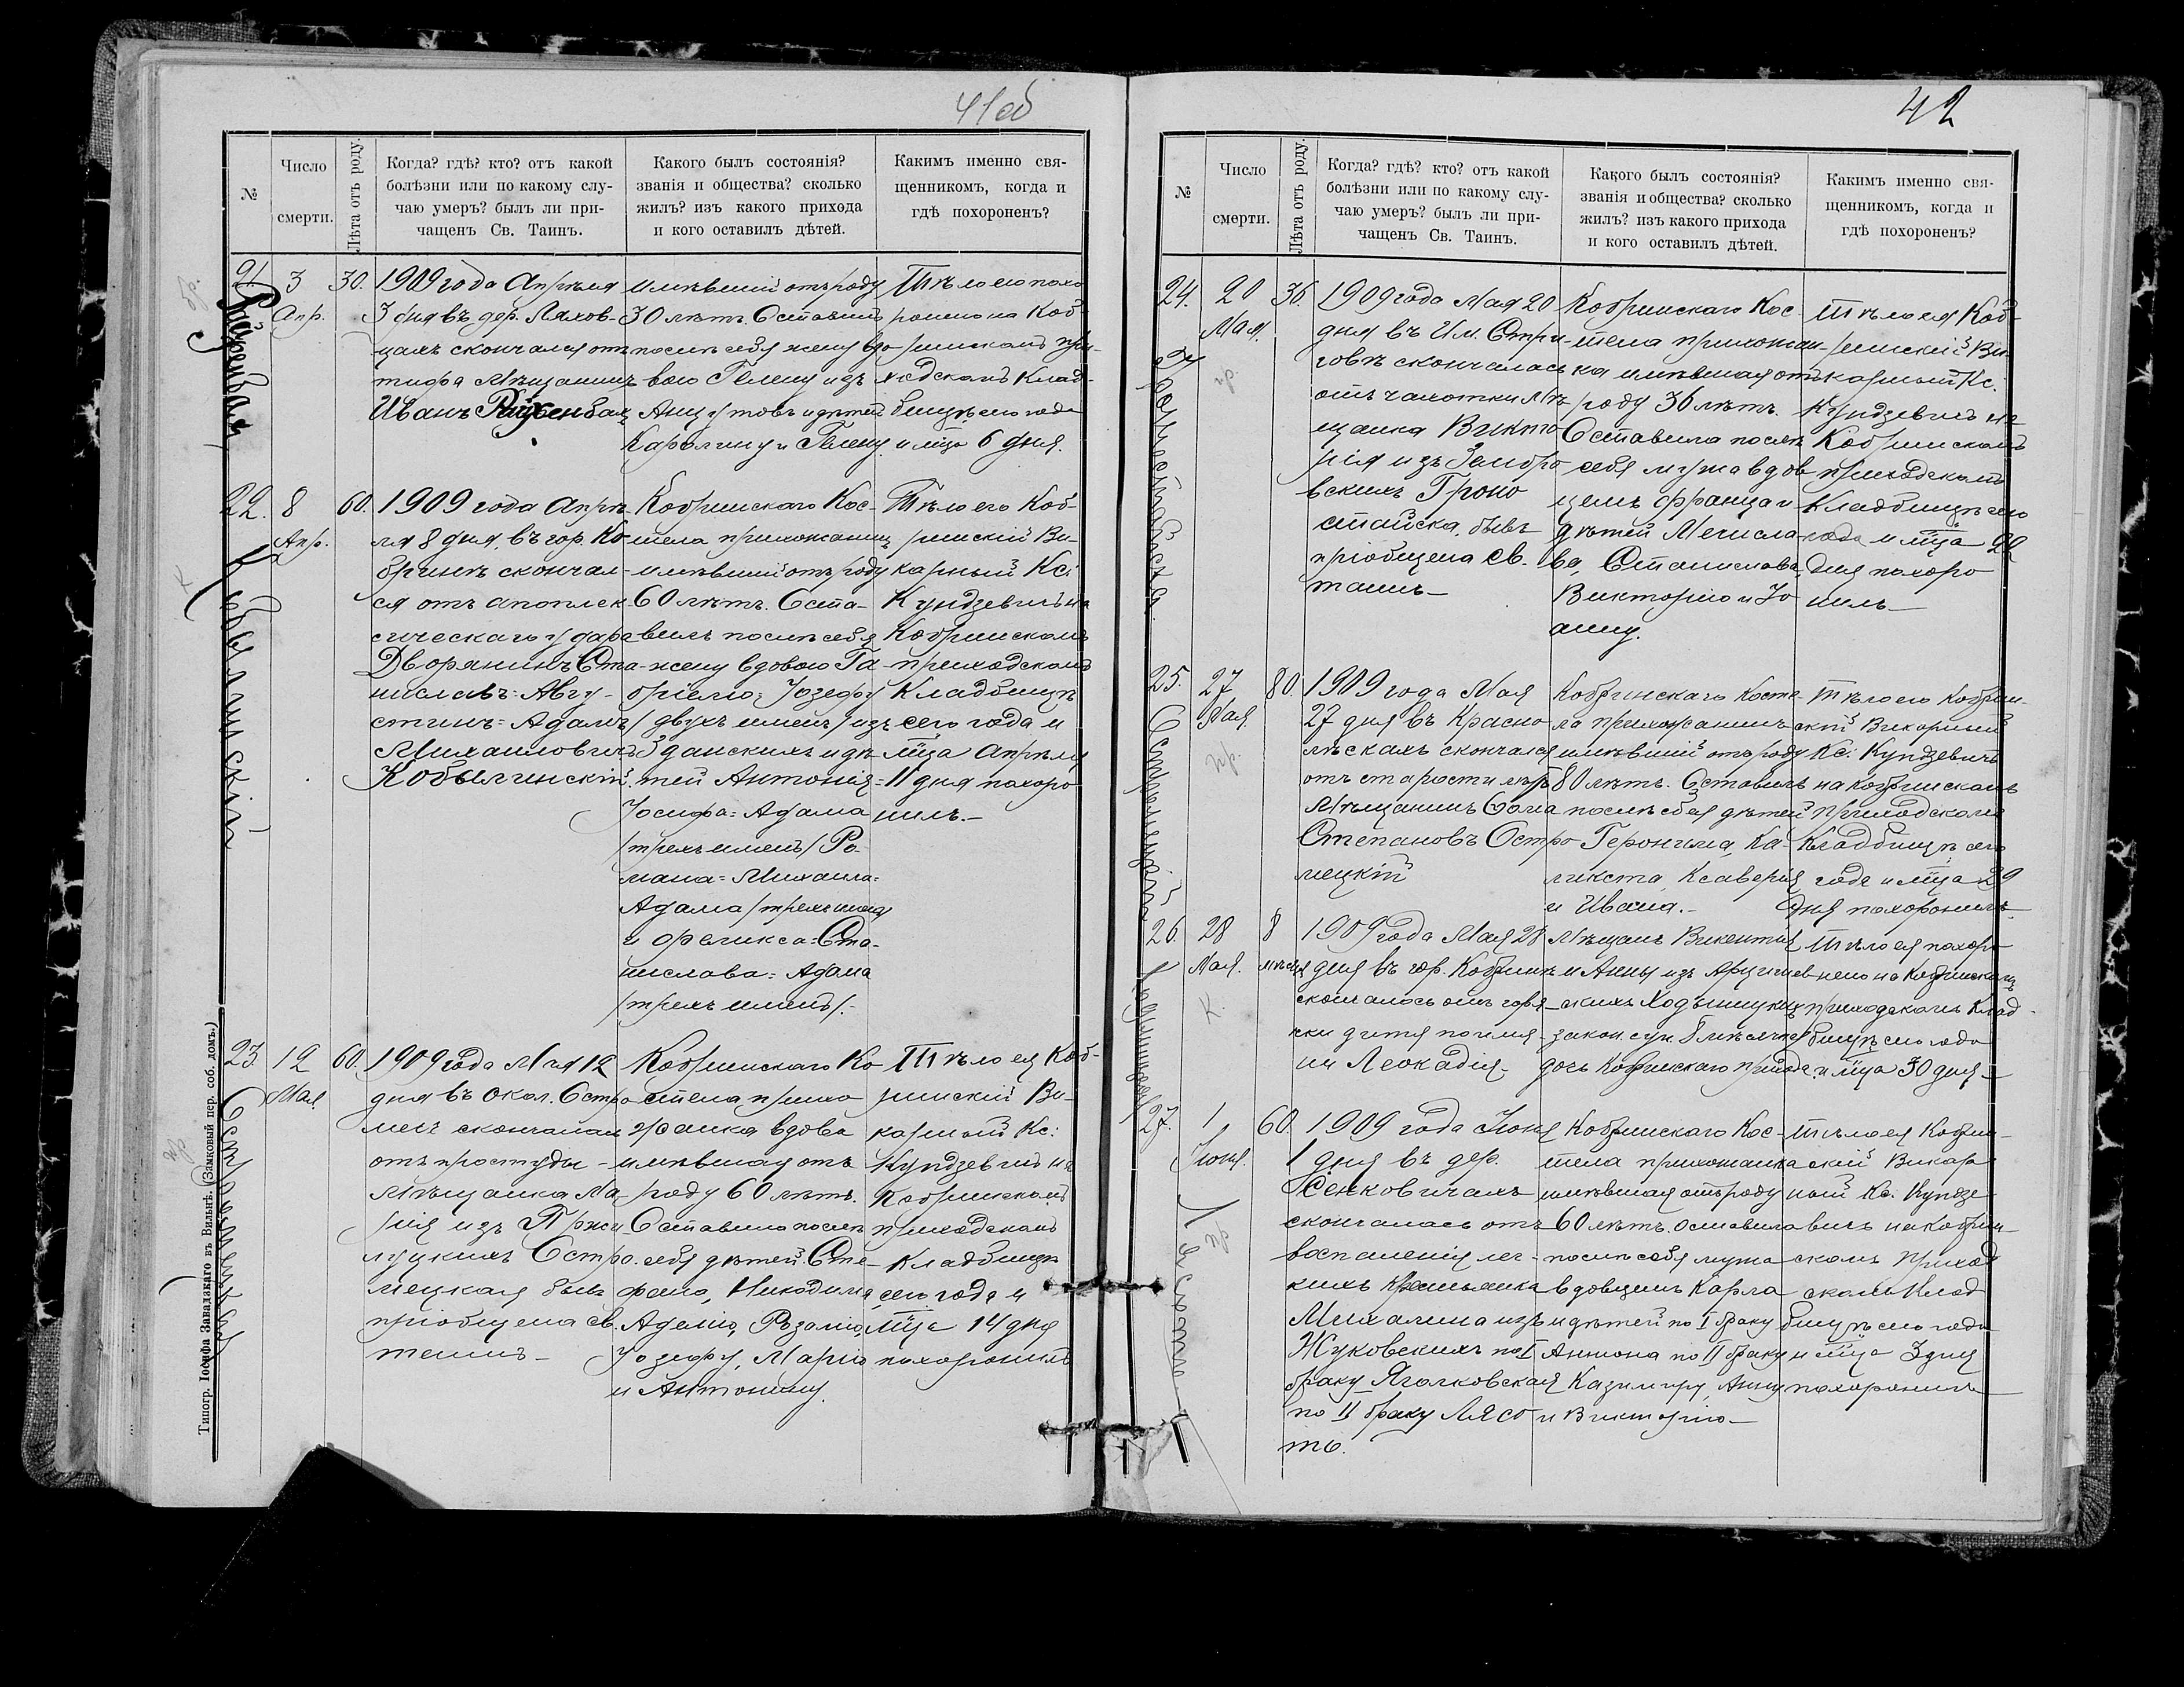 41об
№
Число
смерти.
Лѣта отъ роду.
Когда? гдѣ? кто? отъ какой
болѣзни или по какому слу-
чаю умеръ? былъ ли при-
чащенъ Св. Таинъ.
Какого былъ состоянія?
званія и общества? сколько
жилъ? изъ какого прихода
и кого оставилъ дѣтей.
Какимъ именно свя-
щенникомъ, когда и
гдѣ похороненъ?
21.
3
Апр.
30.
1909 года Апрѣля
3 дня въ дер. Ляхов-
цахъ скончался отъ
тифа Мѣщанинъ
Иванъ
имѣвшій отъ роду
30 лѣтъ. Оставилъ
послѣ себя жену вдо-
вою Гелену изъ
и дѣтей
Каролину и Гелену
Тѣло его похо
ронено на Коб-
ринскомъ при-
ходскомъ Клад-
бищѣ сего года
и мца 6 дня.
22.
8
Апр.
60.
Кобылинскій
1909 года Апрѣ-
ля 8 дня, въ гор. Ко
бринѣ скончал-
ся отъ апоплек
сическаго удара
Дворянинъ Ста-
ниславъ=Авгу-
стинъ=Адамъ
Михайловичъ
Кобылинскій.
Кобринскаго Кос-
тела прихожанинъ
имѣвшій отъ роду
60 лѣтъ. Оста-
вилъ послѣ себя
жену вдовою Га-
бріелю=Іозефу
/двухъ именъ/ изъ
Зданскихъ и дѣ-
тей Антонія=
Іосифа=Адама
/трехъ именъ/ Ро-
мана=Михаила=
Адама /трехъ именъ/
и Феликса=Ста-
нислава=Адама
/трехъ именъ/.-
Тѣло его Коб-
ринскій Ви-
карный Кс:
Кундзевичъ на
Кобринскомъ
приходскомъ
Кладбищѣ
сего года и
мца Апрѣля
11 дня похоро
нилъ.-
23.
12
Мая
60.
Остромецкая
1909 года Мая 12
дня въ окол. Остро
мечъ скончалась
отъ простуды-
Мѣщанка Ма-
рія изъ Пржи-
луцкихъ Остро-
мецкая бывъ
пріобщена Св.
таинъ-
Кобринскаго Ко
стела прихо
жанка вдова
имѣвшая отъ
роду 60 лѣтъ.
Оставила послѣ
себя дѣтей Сте-
фана, Никодима,
Аделію, Розалію,
Іозефу, Марію
и Антонину.
Тѣло ея Коб-
ринскій Ви-
карный Кс:
Кундзевичъ на
Кобринскомъ
приходскомъ
Кладбищѣ
сего года и
мца 14 дня
похоронилъ
Типогр. Іосифа Завадзкаго въ Вильнѣ. (Замковый пер. соб. домъ.)
42
№
Число
смерти.
Лѣта отъ роду.
Когда? гдѣ? кто? отъ какой
болѣзни или по какому слу-
чаю умеръ? былъ ли при-
чащенъ Св. Таинъ.
Какого былъ состоянія?
званія и общества? сколько
жилъ? изъ какого прихода
и кого оставилъ дѣтей.
Какимъ именно свя-
щенникомъ, когда и
гдѣ похороненъ?
24.
20
Мая.
36.
1909 года Мая 20
дня въ Им. Стри-
говѣ скончалась
отъ чахотки мѣ
щанка Викто
рія изъ Домбро
вскихъ Гроно
стайска, бывъ
пріобщена Св.
таинъ-
Кобринскаго Кос
тела прихожан-
ка имѣвшая отъ
роду 36 лѣтъ.
Оставила послѣ
себя мужа вдов
цемъ Франца и
дѣтей Мечисла-
ва, Станислава,
Викторію и Іо
анну.
Тѣло ея Коб-
ринскій Ви-
карный Кс.
Кундзевичъ на
Кобринскомъ
приходскомъ
Кладбищѣ сего
года и мца 22
дня похоро
нилъ-
25.
27
Мая
80.
Остромецкій
1909 года Мая
27 дня въ Красно
лѣскахъ скончался
отъ старости лѣтъ
Мѣщанинъ Ѳома
Степановъ Остро
мецкій
Кобринскаго Косте-
ла прихожанинъ
имѣвшій отъ роду
80 лѣтъ. Оставилъ
послѣ себя дѣтей
Геронима, Ка-
ликста, Ксаверія
и Ивана.-
Тѣло его Кобрин-
скій Викарный
Кс: Кундзевичъ
на Кобринскомъ
Приходскомъ
Кладбищѣ сего
года и мца 29
дня похоронилъ.
26.
28
Мая.
8
мѣсяц
1909 года Мая 28
дня въ гор. Кобринѣ
скончалось отъ горя-
чки дитя по имя-
ни Леокадія-
Мѣщанъ Викентія
и Анны изъ
скихъ Ходыницкихъ
закон. суп. 8 мѣсячная
дочь Кобринскаго прихода.
Тѣло ея похоро
нено на Кобринскомъ
приходскомъ Клад-
бищѣ сего года
и мца 30 дня-
27.
1
Іюня.
60.
1909 года Іюня
1 дня въ дер.
Сенковичахъ
скончалась отъ
воспаленія лег-
кихъ Крестьянка
Михалина изъ
Жуковскихъ по I
браку Яголковская
по II браку Лясо
ть.
Кобринскаго Кос-
тела прихожанка
имѣвшая отъ роду
60 лѣтъ. Оставила
послѣ себя мужа
вдовцемъ Карла
и дѣтей по I браку
Антона по II браку
Казимиру, Анну
и Викторію-
Тѣло ея Кобрин-
скій Викар
ный Кс. Кундзе
вичъ на Кобрин-
скомъ Приход
скомъ Клад
бищѣ сего года
и мца 3 дня
похоронилъ